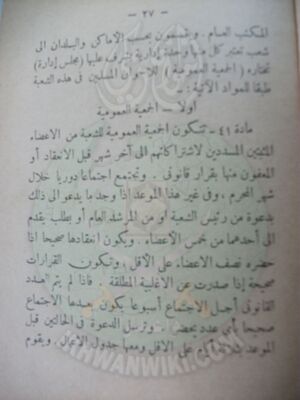 — ٢٧ —
المكتب العام. وتنقسمون بحسب الأماكن والبلدان الى
شعب تعتبر كل منها وحدة إدارية يشرف عليها (مجلس إدارة)
تختاره (الجمعية العمومية) للاخوان المسلمين في هذه الشعبة
طبقا للمواد الآتية:
أولا — الجمعية العمومية
مادة ٤١ — تتكون الجمعية العمومية للشعبة من الأعضاء
المثبتين المسددين لاشتراكاتهم الى آخر شهر قبل الانعقاد أو
المعفون منها بقرار قانونى. وتجتمع اجتماعا دوريا خلال
شهر المحرم، وفى غير هذا الموعد اذا وجد ما يدعو الى ذلك
بدعوة من رئيس الشعبة أو من المرشد العام أو بطلب يقدم
الى أحدهما من خمس الأعضاء. ويكون انعقادها صحيحا اذا
حضره نصف الأعضاء على الأقل، وتكون القرارات
صحيحة إذا صدرت عن الأغلبية المطلقة. فاذا لم يتم العدد
القانونى أجل الاجتماع أسبوعا يكون بعدها الاجتماع
صحيحا بأي عدد يحضر. وترسل الدعوة في الحالتين قبل
الموعد بثلاثة أيام على الأقل ومعها جدول الأعمال. ويقوم
IKHWANWIKI.COM